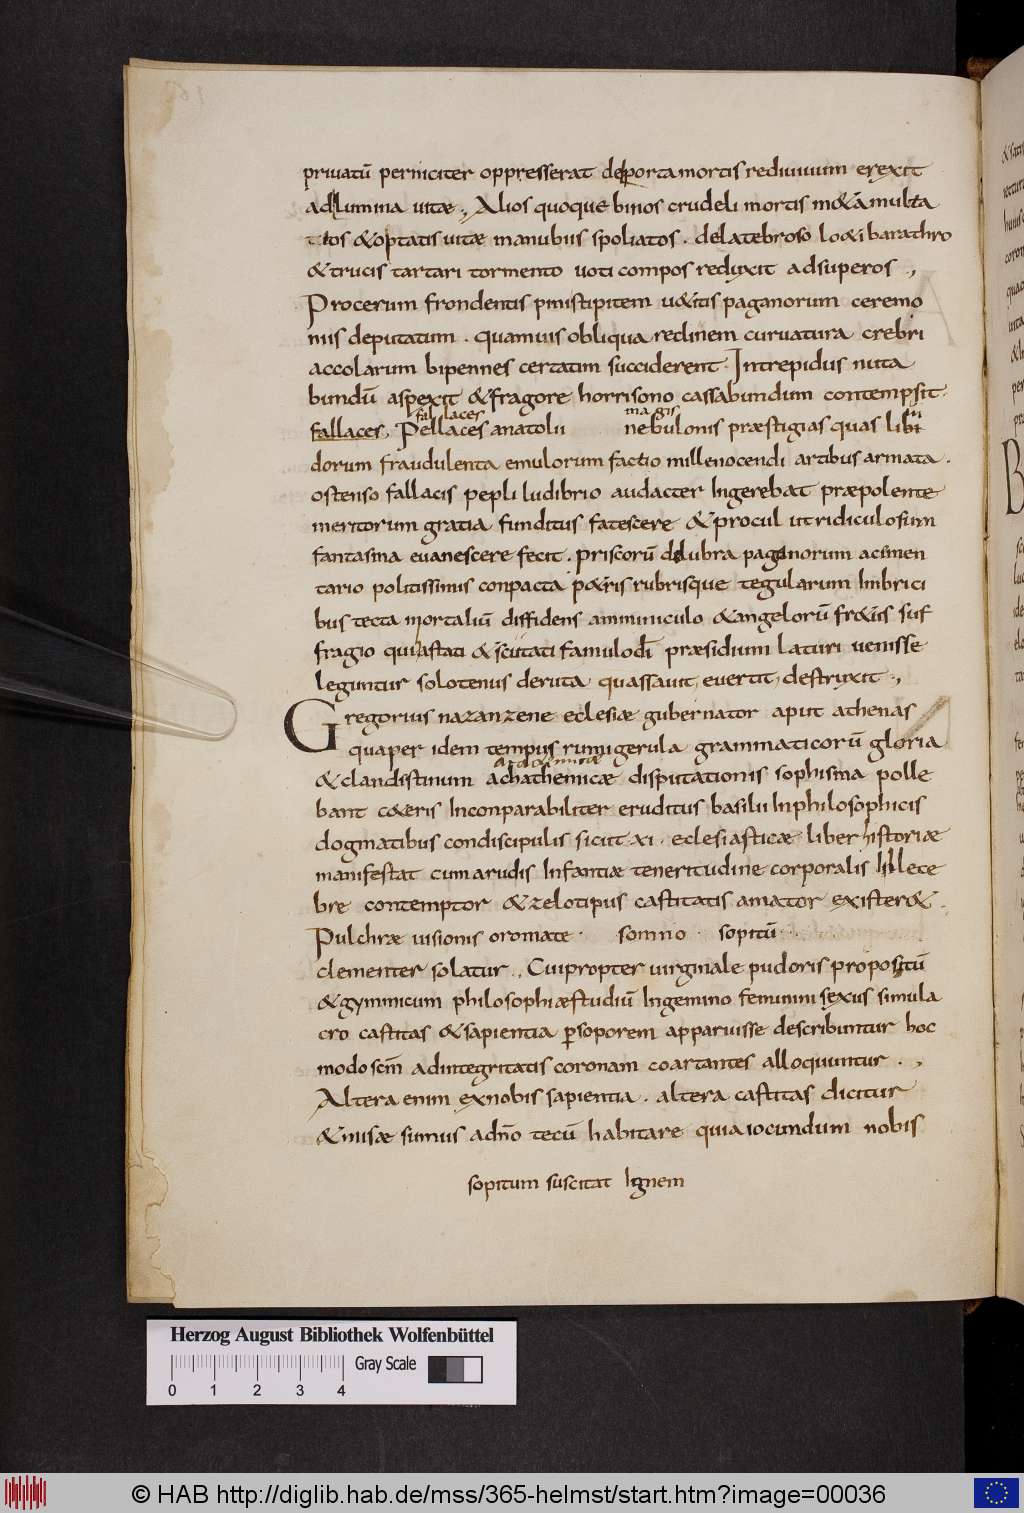 privatū perniciter oppresserat de porta mortis redivivum erexit
ad Lumina vitae ., Alios quoque binos crudeli mortis m&a multa
tos &optatis vitae manubiis spoliatos . de latebroso lo&i barathro
&trucis tartari tormento voti compos reduxit ad superos .,
Procerum frondentis pini stipitem v&itis paganorum ceremo
niis deputatum . quamvis obliqua redinem curvatura crebri
accolarum bipennes certatim succiderent . Intrepidus nuta
bundū aspexit &fragore horrisono cassabundum contempsit .
fallaces
magis
fallaces . Pellaces anatolii nebulonis praestigias quas libi
dorum fraudulenta emulorum factio mille nocendi artibus armata .
ostenso fallacis pepli ludibrio audacter Ingerebat praepolente
meritorum gratia funditus fatescere &procul ut ridiculosum
fantasma evanescere fecit . priscorū delubra paganorum acimen
tario politissimis conpacta p&ris rubrisque tegularum Imbrici
bus tecta mortaliū diffidens amminiculo &angelorū fr&us suf
fragio qui astati & scutati famulo dī praesidium laturi venisse
leguntur solotenus deruta quassavit evertit destruxit .,
Gregorius nazanzene eclesiae gubernator aput athenas
quaper idem tempus rumigerula grammaticorū gloria
&clandistinum achathemicae disputationis sophisma polle
bant c&eris Inconparabiliter eruditus basilii In philosophicis
dogmatibus condiscipulis sicut xi . eclesiasticae liber historiae
manifestat cum a rudis Infantiae teneritudine corporalis Illece
bre contemptor &zelotipus castitatis amator exister& .
Pulchrae visionis oromate . somno . sopitū
clementer solatur . Cui propter virginale pudoris propositū
&gymnicum philosophiae studiū Ingemino feminini sexus simula
cro castitas &sapientia p soporem apparuisse describuntur hoc
modo scm̄ ad integritatis coronam coartantes alloquuntur . ,
Altera enim ex nobis sapientia . altera castitas dicitur
&misae sumus ad n̄o tecū habitare quia iocundum nobis
sopitum suscitat Ignem
Herzog August Bibliothek Wolfenbüttel
Gray Scale
0 1 2 3 4
© HAB http://diglib.hab.de/mss/365-helmst/start.htm?image=00036